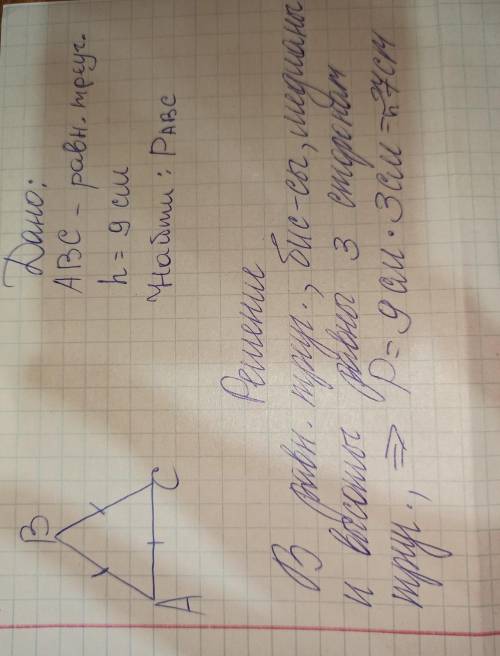 Дано:
ABC - равн. треуг.
h = 9 см
Найти: PABC
B
A
C
Решение
В равн. треуг., бис-сы, медианы
и высоты равны 3 сторонам
треуг., ⇒ P = 9 см · 3 см = 27 см